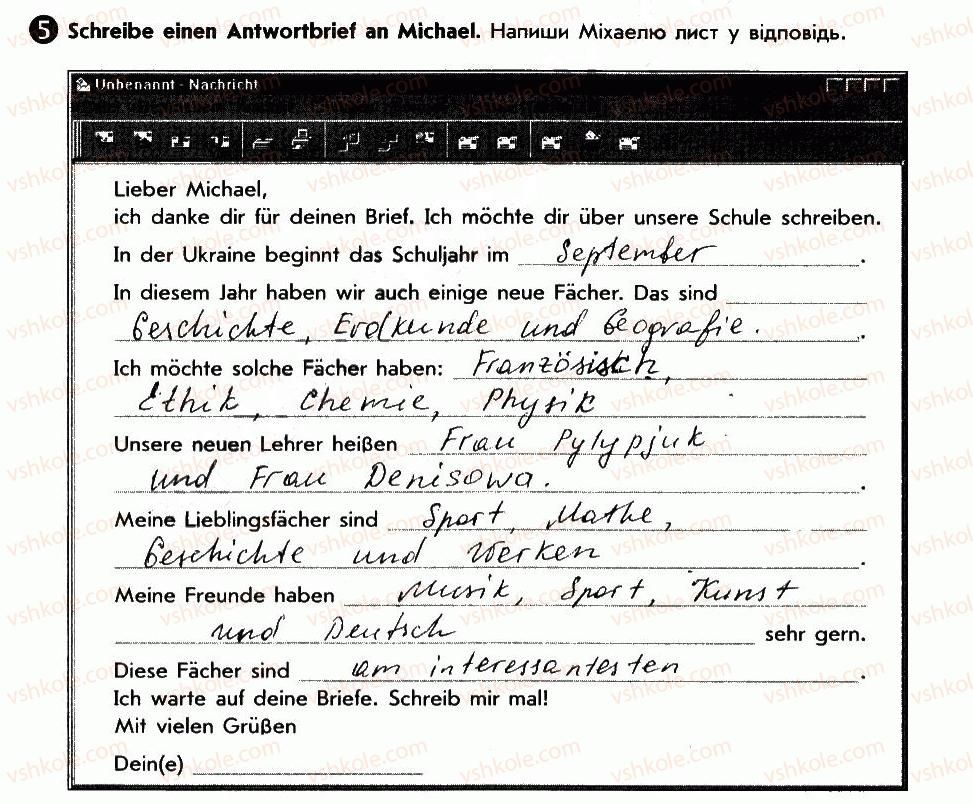 5 Schreibe einen Antwortbrief an Michael. Напиши Міхаелю лист у відповідь.
Unbenannt - Nachricht
Lieber Michael,
ich danke dir für deinen Brief. Ich möchte dir über unsere Schule schreiben.
In der Ukraine beginnt das Schuljahr im September.
In diesem Jahr haben wir auch einige neue Fächer. Das sind
Geschichte, Erdkunde und Geografie.
Ich möchte solche Fächer haben: Französisch,
Ethik, Chemie, Physik
Unsere neuen Lehrer heißen Frau Pylypjuk
und Frau Denisowa.
Meine Lieblingsfächer sind Sport, Mathe,
Geschichte und Werken.
Meine Freunde haben Musik, Sport, Kunst
und Deutsch sehr gern.
Diese Fächer sind am interessantesten.
Ich warte auf deine Briefe. Schreib mir mal!
Mit vielen Grüßen
Dein(e)
vshkole.com